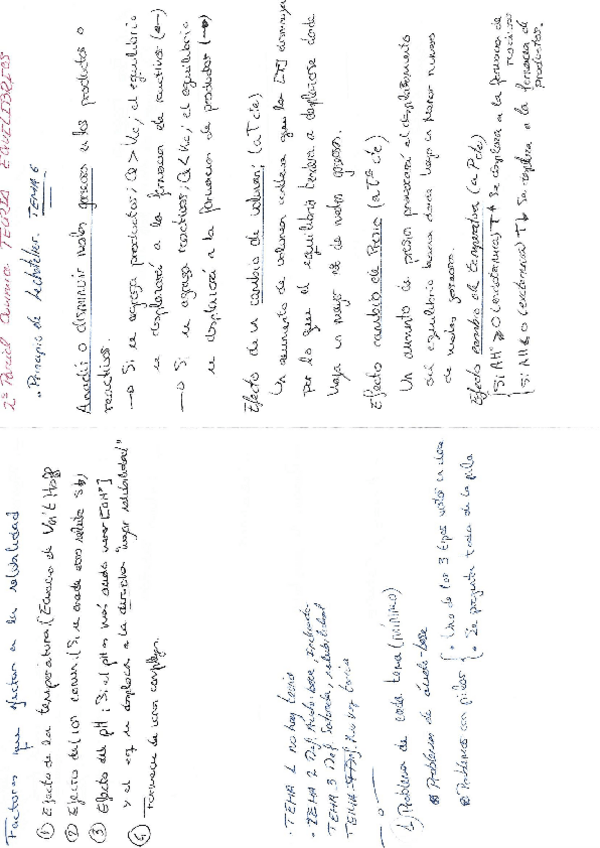 2º Parcial Química TEORÍA EQUILIBRIOS
"Principio de Lechatelier. TEMA 6
Añadir o disminuir moles gaseosos a los productos o
reactivos.
→ Si se agrega productos; Qc > Kc; el equilibrio
se desplazará a la formación de reactivos (←)
→ Si se agrega reactivos; Qc < Kc; el equilibrio
se desplazará a la formación de productos (→)
Efecto de un cambio de volumen; (a T cte)
Un aumento de volumen conlleva que las [ ] disminuya
por lo que el equilibrio tenderá a desplazarse donde
haya un mayor nº de moles gaseosos.
Efecto cambio de Presión (a Tª cte)
Un aumento de presión provocará el desplazamiento
del equilibrio hacia donde haya un menor número
de moles gaseosos.
Efecto cambio de temperatura (a P cte)
Si ΔH > 0 (endotérmica) T↑ Se desplaza a la formación de
productos
Si ΔH < 0 (exotérmica) T↓ Se desplaza a la formación de
productos.
Factores que afectan a la solubilidad
① Efecto de la temperatura (Ecuación de Van't Hoff
② Efecto del ion común (Si se añade otro soluto S↓)
③ Efecto del pH: Si el pH es más ácido menor [OH⁻]
y el eq se desplaza a la derecha "mayor solubilidad"
④ Formación de iones complejos.
· TEMA 1 no hay teoría
· TEMA 2 Def. Ácido-base,
TEMA 3 Def. solubilidad
TEMA 4 Def. No hay teoría
1) Problema de cada tema (mínimo)
Problemas de ácido-base
Problemas con pilas
• Uno de los 3 tipos vistos en clase
• Se pregunta teoría de la pila